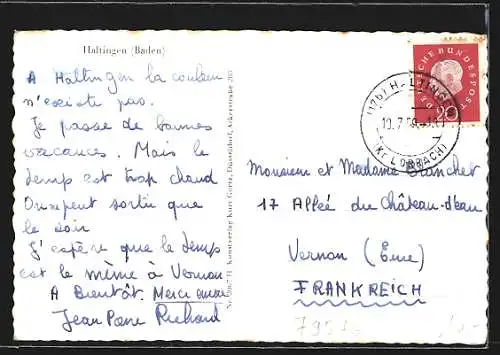 Haltingen (Baden)
A Haltingen la couleur
n'existe pas.
Je passe de bonnes
vacances. Mais le
temps est trop chaud
On ne peut sortir que
le soir
J'espère que le temps
est le même à Vernon
A Bientôt. Merci encore
Jean Pierre Richard
Kunstverlag Kurt Düsseldorf, Ackerstraße
DEUTSCHE BUNDESPOST
20
(17b) HALTINGEN
10.7.59
(Kr. LÖRRACH)
Monsieur et Madame Blanchet
17 Allée du Château-d'eau
Vernon (Eure)
FRANKREICH